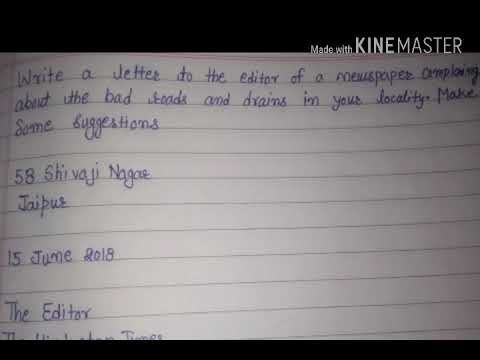 Made with KINEMASTER
Write a letter to the editor of a newspaper complaing
about the bad roads and drains in your locality. Make
Some Suggestions
58 Shivaji Nagar
Jaipur
15 June 2018
The Editor
The Hindustan Times